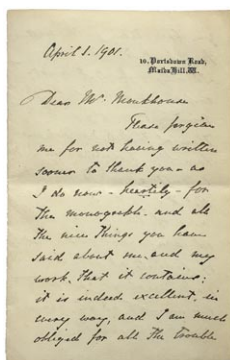 April 1. 1901.
10, Portsdown Road,
Maida Hill, W.
Dear Mr. Monkhouse
Please forgive
me for not having written
sooner to thank you - as
I do now - heartily - for
the monograph - and all
the nice things you have
said about me, and my
work, that it contains:
it is indeed excellent, in
every way, and I am much
obliged for all the trouble